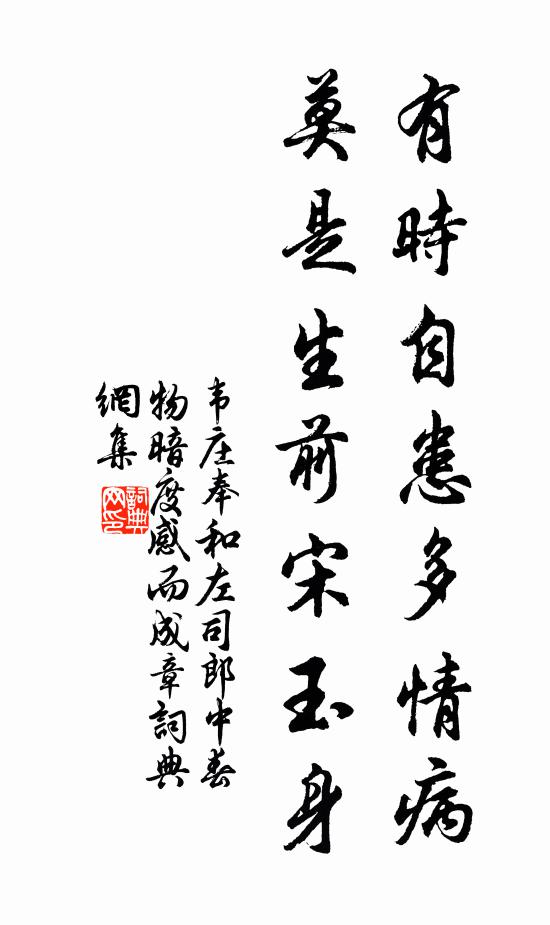 有時自患多情病
莫是生前宋玉身
韦庄奉和左司郎中春
物暗度感而成章詞典
網集
詞典
网印